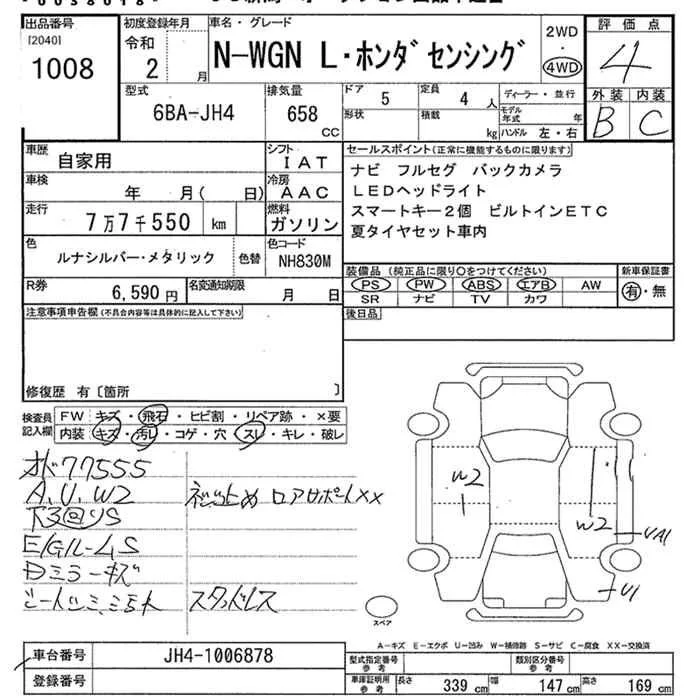 出品番号
[2040]
1008
初度登録年月
令和
2 月
車名・グレード
N-WGN L・ホンダセンシング
2WD
・
4WD
評価点
4
外装 内装
B C
型式
6BA-JH4
排気量
658
CC
ドア
5
定員
4 人
ディーラー・並行
形状
積載
kg
モデル年式 年
ハンドル 左・右
車歴
自家用
シフト
IAT
車検
年 月( 日)
冷房
AAC
走行
7万7千550 km
燃料
ガソリン
色
ルナシルバー・メタリック
色替
色コード
NH830M
R券
6,590円
名変通知期限
月 日
セールスポイント(正常に機能するものに限ります)
ナビ フルセグ バックカメラ
LEDヘッドライト
スマートキー2個 ビルトインETC
夏タイヤセット車内
装備品 (純正品に限り○をつけてください)
新車保証書
PS PW ABS エアB AW
有・無
SR ナビ TV カワ
後日品
注意事項申告欄(不具合内容等は具体的に記入して下さい)
修復歴 有〔箇所 〕
検査員
記入欄
FW キズ・飛石・ヒビ割・リペア跡・×要
内装 キズ・汚レ・コゲ・穴・スレ・キレ・破レ
オド77555
A、U、W2 ネジ止め ロアサポートXX
下廻りS
E/Gルーム S
Dミラーキズ
シートシミ、ミミ スタッドレス
W2
W2
UA1
U1
スペア
A-キズ E-エクボ U-凹み W-補修跡 S-サビ C-腐食 XX-交換済
車台番号
JH4-1006878
登録番号
型式指定番号
参考
類別区分番号
参考
車庫証明用
参考
長さ 339 cm 幅 147 cm 高さ 169 cm